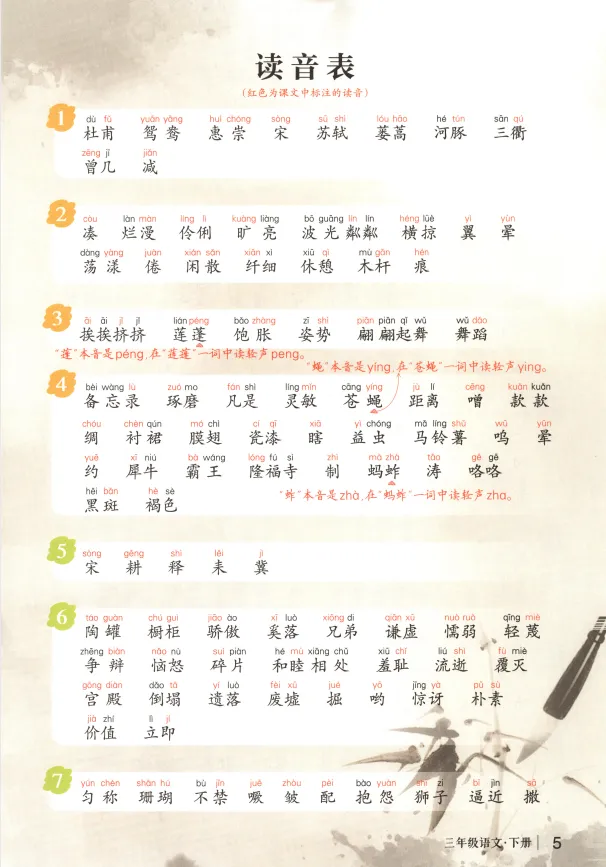 读音表
(红色为课文中标注的读音)
1
dù fǔ yuān yāng huì chóng sòng sū shì lóu hāo hé tún sān qú
杜甫 鸳鸯 惠崇 宋 苏轼 蒌蒿 河豚 三衢
zēng jǐ jiǎn
曾几 减
2
còu làn màn líng lì kuàng liàng bō guāng lín lín héng lüè yì yùn
凑 烂漫 伶俐 旷亮 波光粼粼 横掠 翼 晕
dàng yàng juàn xián sǎn xiān xì xiū qì mù gān hén
荡漾 倦 闲散 纤细 休憩 木杆 痕
3
āi āi jǐ jǐ lián péng bǎo zhàng zī shì piān piān qǐ wǔ wǔ dǎo
挨挨挤挤 莲蓬 饱胀 姿势 翩翩起舞 舞蹈
“蓬”本音是péng,在“莲蓬”一词中读轻声peng。
“蝇”本音是yíng,在“苍蝇”一词中读轻声ying。
4
bèi wàng lù zuó mo fán shì líng mǐn cāng yíng jù lí cēng kuǎn kuǎn
备忘录 琢磨 凡是 灵敏 苍蝇 距离 噌 款款
chóu chèn qún mó chì cí qī xiā yì chóng mǎ líng shǔ wū yūn
绸 衬裙 膜翅 瓷漆 瞎 益虫 马铃薯 呜 晕
yuē xī niú bà wáng lóng fú sì zhì mà zhà tāo gē gē
约 犀牛 霸王 隆福寺 制 蚂蚱 涛 咯咯
hēi bān hè sè
黑斑 褐色
“蚱”本音是zhà,在“蚂蚱”一词中读轻声zha。
5
sòng gēng shì lěi jì
宋 耕 释 耒 冀
6
táo guàn chú guì jiāo ào xī luò xiōng dì qiān xū nuò ruò qīng miè
陶罐 橱柜 骄傲 奚落 兄弟 谦虚 懦弱 轻蔑
zhēng biàn nǎo nù suì piàn hé mù xiāng chǔ xiū chǐ liú shì fù miè
争辩 恼怒 碎片 和睦相处 羞耻 流逝 覆灭
gōng diàn dǎo tā yí luò fèi xū jué yō jīng yà pǔ sù
宫殿 倒塌 遗落 废墟 掘 哟 惊讶 朴素
jià zhí lì jí
价值 立即
7
yún chèn shān hú bù jīn juē zhòu pèi bào yuàn shī zi bī jìn sā
匀称 珊瑚 不禁 噘 皱 配 抱怨 狮子 逼近 撒
三年级语文·下册 5